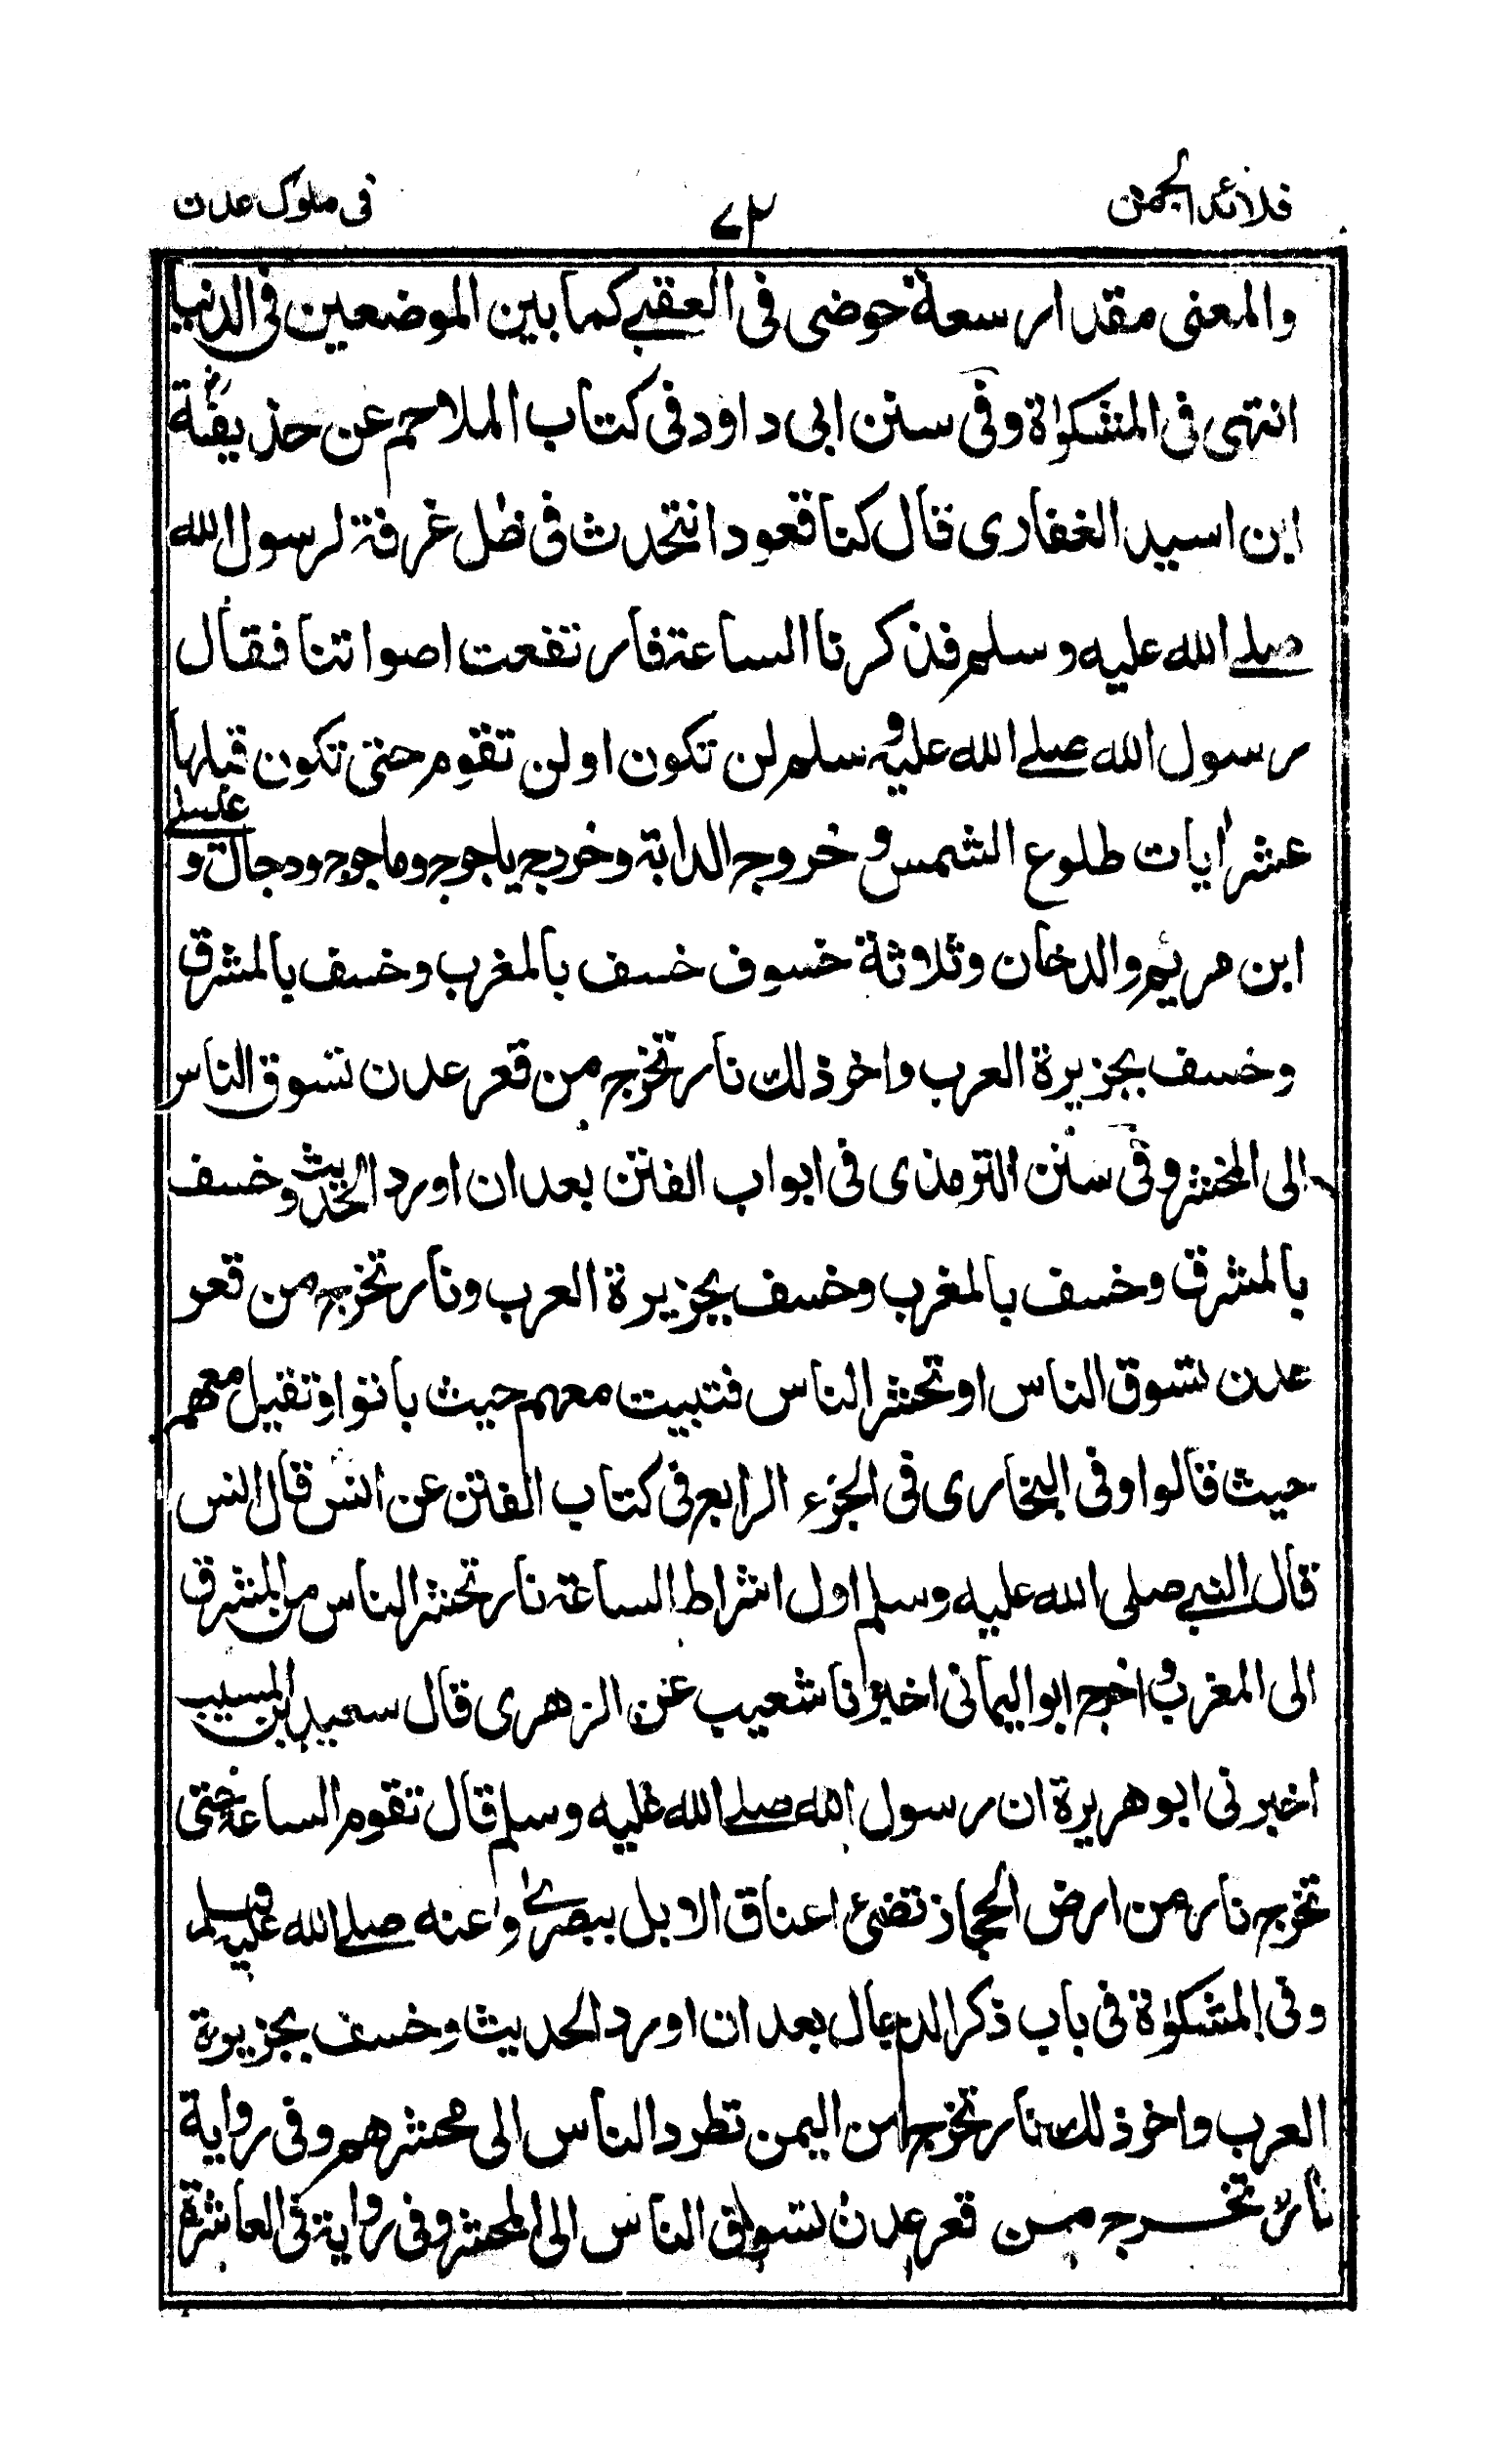 قلائد الجمن ٧٢ في ملوك عدن
والمعنى مقدار سعة حوضى فى العقبى كما بين الموضعين فى الدنيا
انتهى فى المشكوٰة وفى سنن ابى داود فى كتاب الملاحم عن حذيفة
ابن اسيد الغفارى قال كنا قعودا نتحدث فى ظل غرفة لرسول الله
صلى الله عليه وسلم فذكرنا الساعة فارتفعت اصواتنا فقال
رسول الله صلى الله عليه وسلم لن تكون اولن تقوم حتى تكون قبلها
عشر اٰيات طلوع الشمس و خروج الدابة وخروج ياجوج وماجوج ودجال و عيسى
ابن مريم والدخان وثلاثة خسوف خسف بالمغرب وخسف بالمشرق
وخسف بجزيرة العرب واخر ذلك نار تخرج من قعر عدن تسوق الناس
الى المحشر وفى سنن الترمذى فى ابواب الفتن بعد ان اورد الحديث وخسف
بالمشرق وخسف بالمغرب وخسف بجزيرة العرب ونار تخرج من قعر
عدن تسوق الناس او تحشر الناس فتبيت معهم حيث باتوا وتقيل معهم
حيث قالوا وفى البخارى فى الجزء الرابع فى كتاب الفتن عن انس قال انس
قال النبى صلى الله عليه وسلم اول اشراط الساعة نار تحشر الناس من المشرق
الى المغرب و اخرج ابو اليمانى اخبرنا شعيب عن الزهرى قال سعيد ابن المسيب
اخبرنى ابو هريرة ان رسول الله صلى الله عليه وسلم قال تقوم الساعة حتى
تخرج نار من ارض الحجاز تضئ اعناق الابل ببصرىٰ وعنه صلى الله عليه وسلم
وفى المشكوٰة فى باب ذكر الدجال بعد ان اورد الحديث وخسف بجزيرة
العرب واخر ذلك نار تخرج من اليمن تطرد الناس الى محشرهم وفى رواية
نار تخرج من قعر عدن تسوق الناس الى المحشر وفى رواية فى العاشرة